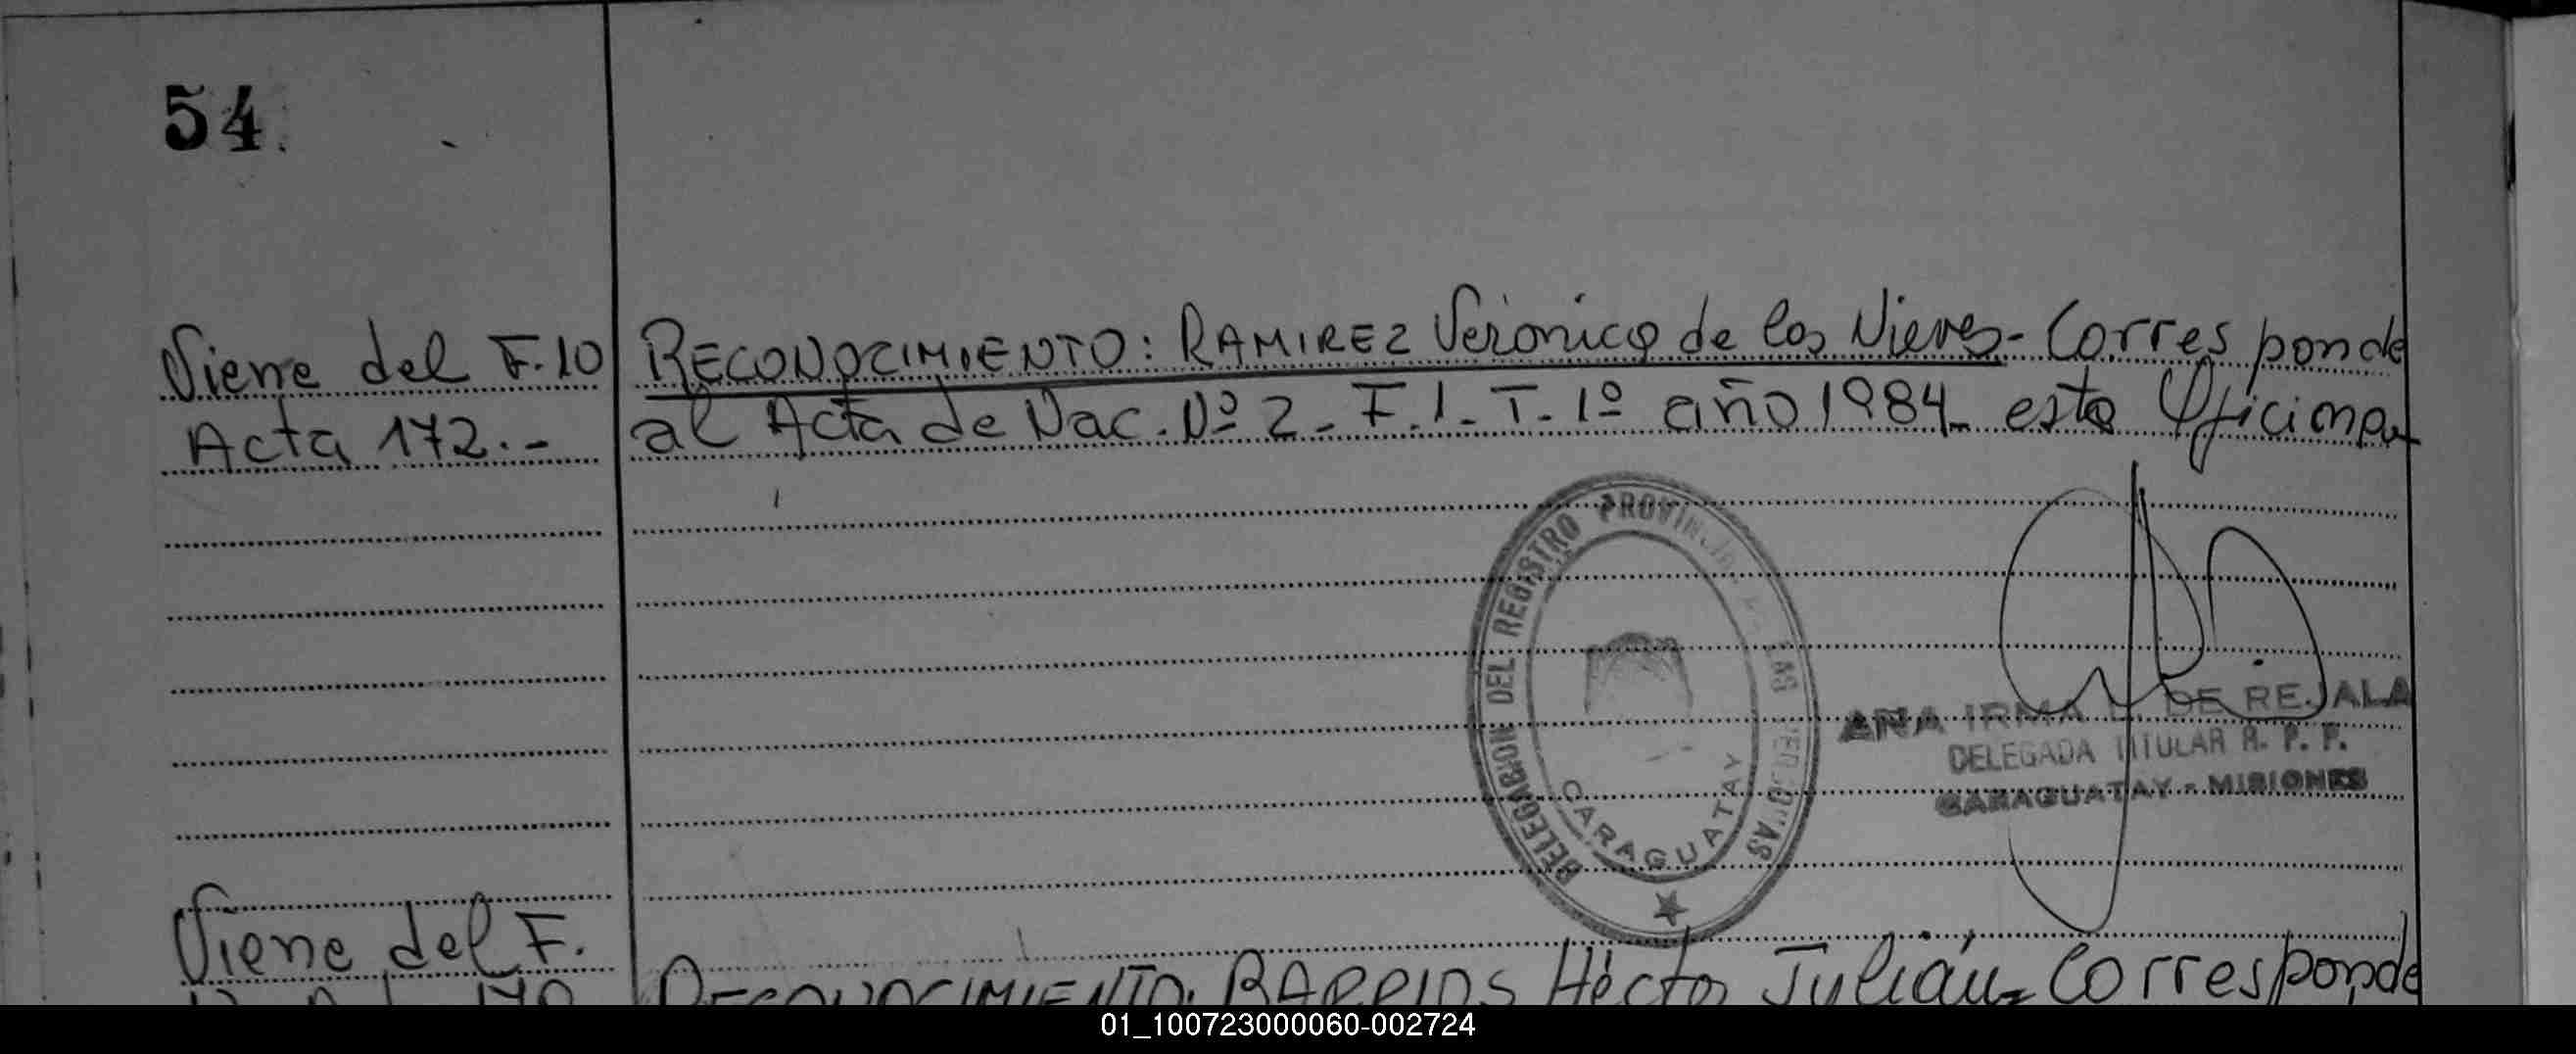 54.
Viene del F. 10
Acta 172.-
RECONOCIMIENTO: RAMIREZ Verónica de las Nieves- Corresponde
al Acta de Nac. Nº 2 - F. 1 - T - 1º año 1984 - esta Oficina
DELEGACION DEL REGISTRO PROVINCIAL DE LAS PERSONAS
CARAGUATAY
ANA IRMA DE REJALA
DELEGADA TITULAR R. P. P.
CARAGUATAY - MISIONES
Viene del F.
RECONOCIMIENTO: BARRIOS Héctor Julián - Corresponde
01_100723000060-002724